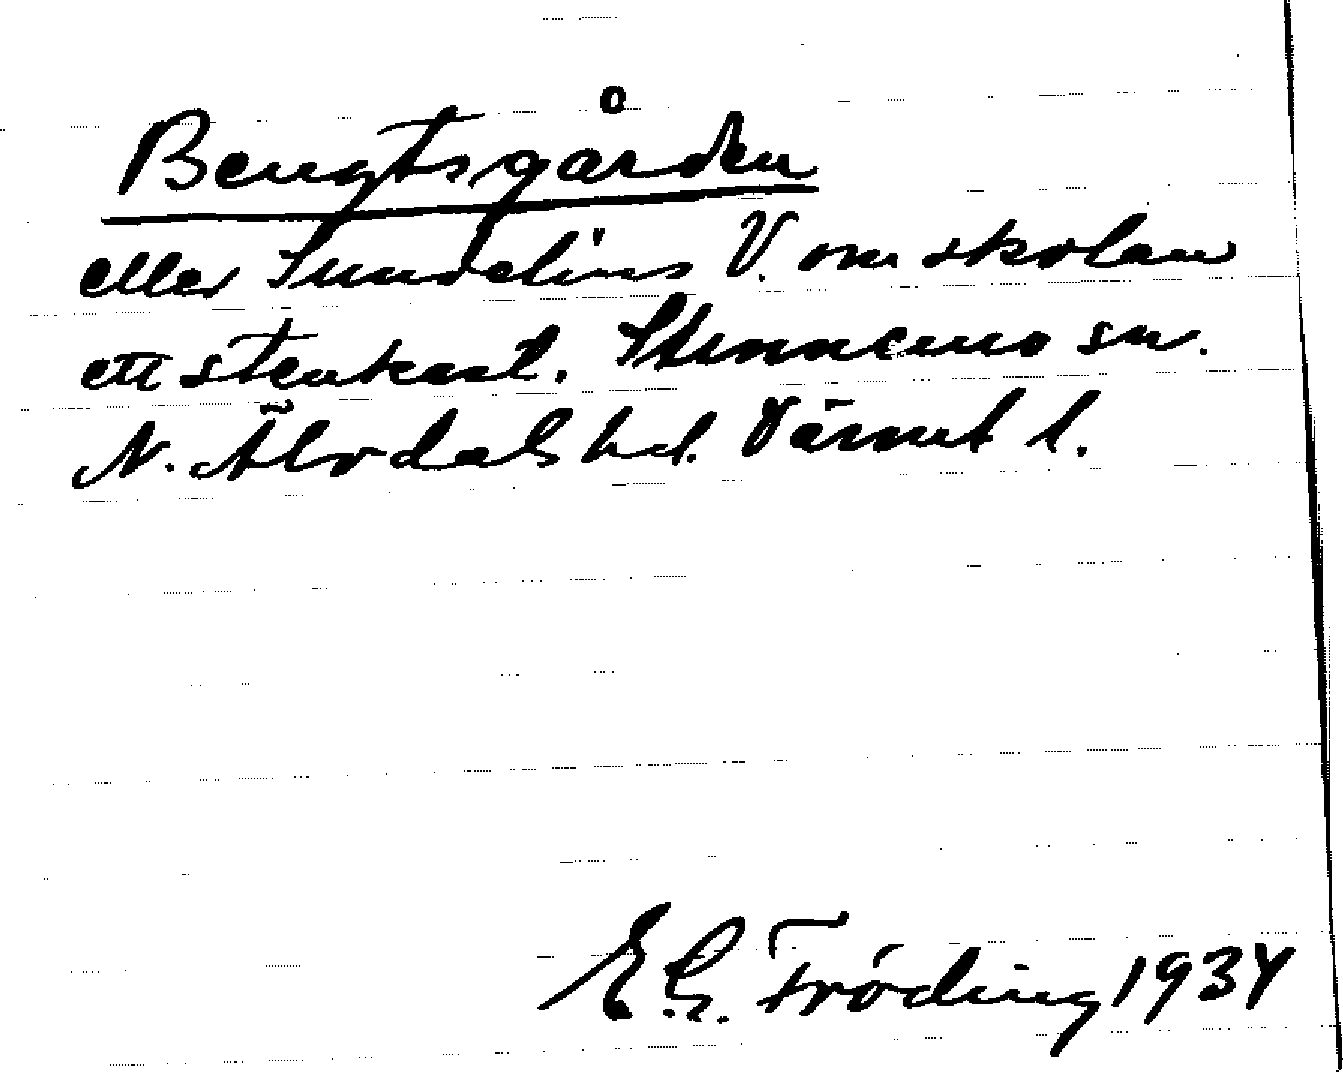 Bengtsgården
eller Sundelins V. om skolan
ett stenkast. Stünnemo sn.
N. Älvdals hd. Värml l.
E. G. Fröding 1934